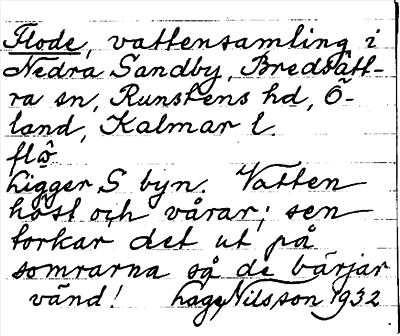 Flode, vattensamling i
Nedra Sandby, Bredsätt-
ra sn, Runstens hd, Ö-
land, Kalmar l.
flô
Ligger S byn. Vatten
höst och vårar; sen
torkar det ut på
somrarna så de bärjar
vänd! Lage Nilsson 1932